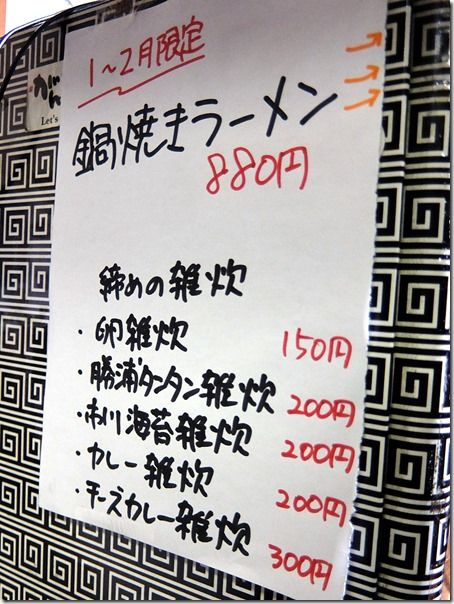 がん
Let's
1～2月限定
鍋焼きラーメン
880円
締めの雑炊
・卵雑炊 150円
・勝浦タンタン雑炊 200円
・市川海苔雑炊 200円
・カレー雑炊 200円
・チーズカレー雑炊 300円